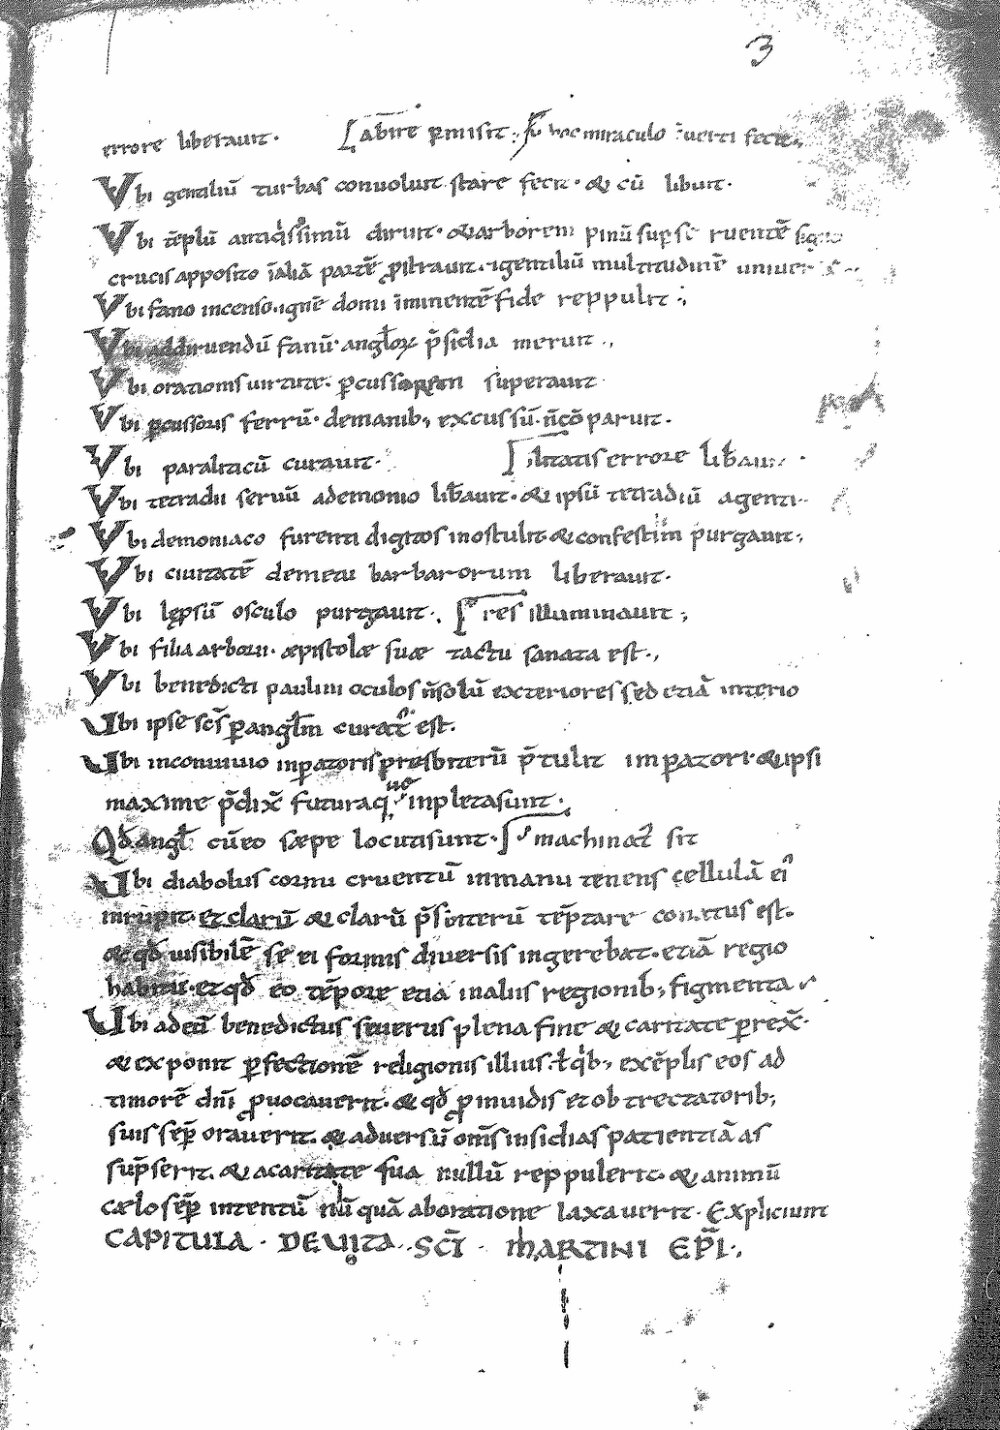 3
errore liberauit. abire pmisit. hoc miraculo ūerti fecit
Vbi gentiliū turbas conuoluit stare fecit. & cū libuit.
Vbi tēplū antiqissimū diruit. & arborem pinū sup se ruentē signo
crucis apposito ī aliā partē pstrauit. igentiliū multitudinē
Vbi fano incenso. ignē domi īminentē fide reppulit.;
Vbi addiruendū fanū. angloꝝ p̄sidia meruit.,
Vbi orationis uirtute. pcussorem superauit
Vbi pcussoris ferrū. demanib; excussū. n̄ cōparuit.
Vbi paraliticū curauit. litatis errore lib̄auit.
Vbi tetradii seruū ademonio lib̄auit. & ipsū tetradiū agenti
Vbi demoniaco furenti digitos inos tulit & confestim purgauit;
Vbi ciuitatē demetu barbarorum liberauit.
Vbi lępsū osculo purgauit. res illuminauit;
Vbi filia arborii. æpistolæ suæ tactu sanata est.,
Vbi benedicti paulini oculos n̄solū exteriores sed etiā interio
Ubi ipse sc̄s p angl̄m curat᷒ est.
Ubi inconuiuio inpatoris presbiterū p̄tulit impatori. & ipsi
maxime p̄dix̄ futura q inpleta sunt.
Qd̄ angl̄i cū eo sæpe locuti sunt. machinat᷒ sit
Ubi diabolus cornu cruentū in manu tenens cellulā ei᷒
inrupit. et clarū & clarū p̄sbiterū tēptare conatus est.
& qd̄ uisibilē se ei formis diuersis ingerebat. etiā regio
habitū. et qd̄ eo tēpore etiā in aliis regionib; figmenta
Ubi ad eū benedictus seuerus plena fine & caritate prex̄.
& exponit pfectionē religionis illius. ł qib; exēplis eos ad
timorē dn̄i puocauerit. & qd̄ p inuidis et obtrectatorib;
suis sēp orauerit. & aduersū om̄s insidias patientiā as
sūpserit. & a caritate sua nullū reppulerit. & animū
cælo sēp intentū nūquā aboratione laxauerit. Expliciunt
CAPITULA. DE UITA. SC̄I. MARTINI EP̄I.,